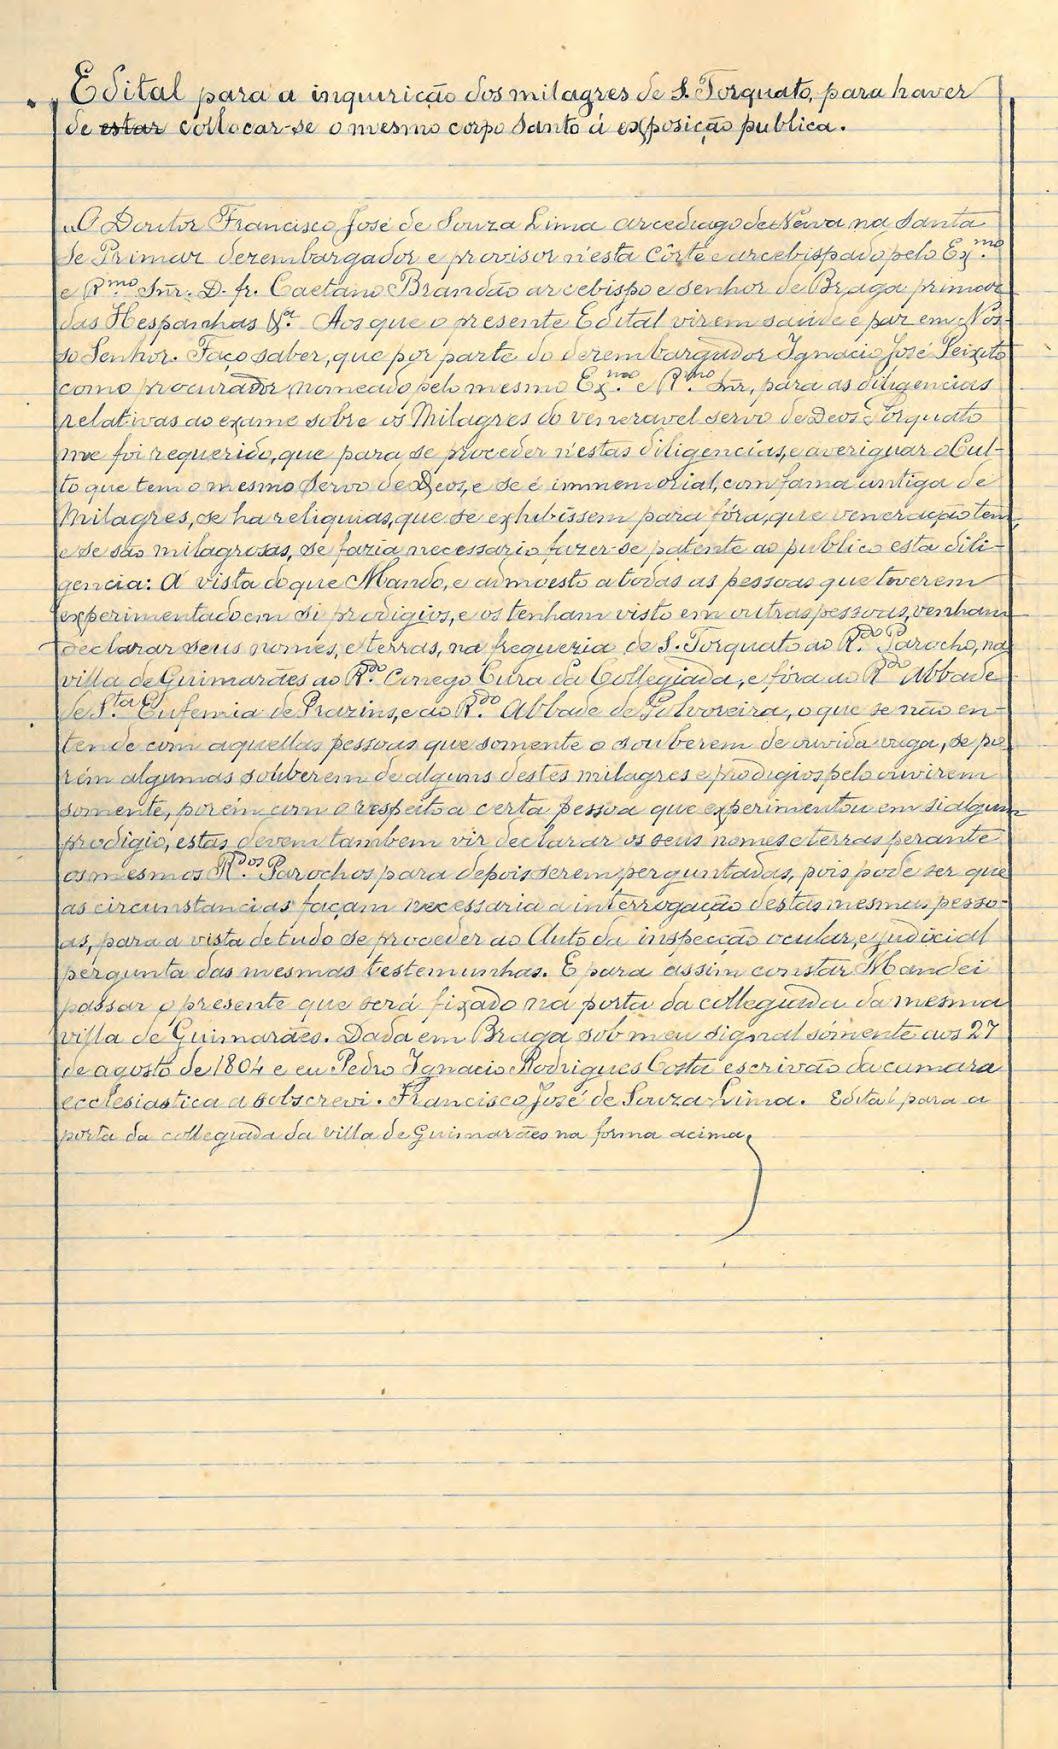 Edital para a inquirição dos milagres de S. Torquato, para haver
de estar collocar-se o mesmo corpo santo á exposição publica.
"O Doutor Francisco José de Souza Lima arcediago de Neiva na Santa
Sé Primaz dezembargador e provisor n'esta Côrte e arcebispado pelo Ex.mo
e R.mo Snr. D. fr. Caetano Brandão arcebispo e senhor de Braga primaz
das Hespanhas &.ª Aos que o presente Edital virem saúde e paz em Nos-
so Senhor. Faço saber, que por parte do dezembargador Ignacio José Peixoto
como procurador nomeado pelo mesmo Ex.mo e R.mo Snr, para as diligencias
relativas ao exame sobre os Milagres do veneravel servo de Deos Torquato
me foi requerido, que para se proceder n'estas diligencias, e averiguar o Cul-
to que tem o mesmo Servo de Deos, e se é immemorial, com fama antiga de
Milagres, se ha reliquias, que se exhibissem para fóra, que veneração tem,
e se são milagrosas, se fazia necessario fazer-se patente ao publico esta dili-
gencia: Á vista do que Mando, e admoesto a todas as pessoas que tiverem
experimentado em si prodigios, e os tenham visto em outras pessoas, venham
declarar seus nomes, e terras, na freguezia de S. Torquato ao R.do Parocho, na
villa de Guimarães ao R.do Conego Cura da Collegiada, e fóra ao R.do Abbade
de S.ta Eufemia de Prazins, e ao R.do Abbade de Polvoreira, o que se não en-
tende com aquellas pessoas que somente o souberem de ouvida vaga, se po-
rém algumas souberem de alguns destes milagres e prodigios pelo ouvirem
somente, porém com o respeito a certa pessoa que experimentou em si algum
prodigio, estas devem tambem vir declarar os seus nomes e terras perante
os mesmos R.dos Parochos para depois serem perguntadas, pois pode ser que
as circunstancias façam necessaria a interrogação destas mesmas pesso-
as, para a vista de tudo se proceder ao Auto da inspecção ocular, e judicial
pergunta das mesmas testemunhas. E para assim constar Mandei
passar o presente que será fixado na porta da collegiada da mesma
villa de Guimarães. Dada em Braga sob meu signal sómente aos 27
de agosto de 1804 e eu Pedro Ignacio Rodrigues Costa escrivão da camara
ecclesiastica a sobscrevi. Francisco José de Souza Lima. Edital para a
porta da collegiada da villa de Guimarães na forma acima,